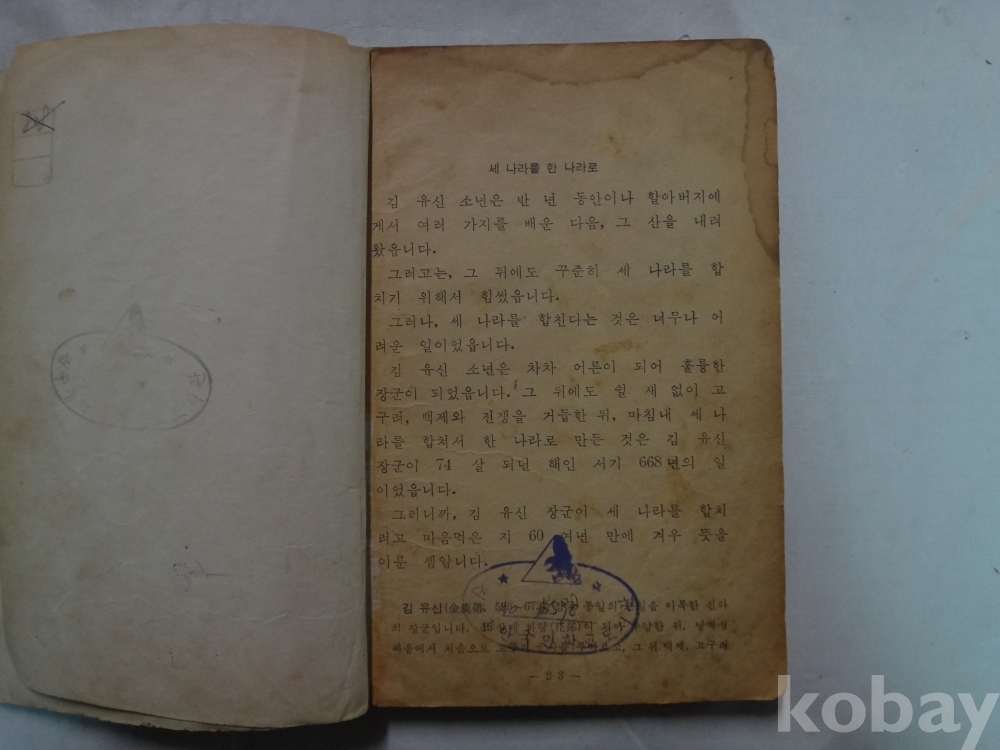 세 나라를 한 나라로
김 유신 소년은 반 년 동안이나 할아버지에
게서 여러 가지를 배운 다음, 그 산을 내려
왔읍니다.
그러고는, 그 뒤에도 꾸준히 세 나라를 합
치기 위해서 힘썼읍니다.
그러나, 세 나라를 합친다는 것은 너무나 어
려운 일이었읍니다.
김 유신 소년은 차차 어른이 되어 훌륭한
장군이 되었읍니다. 그 뒤에도 쉴 새 없이 고
구려, 백제와 전쟁을 거듭한 뒤, 마침내 세 나
라를 합쳐서 한 나라로 만든 것은 김 유신
장군이 74 살 되던 해인 서기 668년의 일
이었읍니다.
그러니까, 김 유신 장군이 세 나라를 합치
려고 마음먹은 지 60 여년 만에 겨우 뜻을
이룬 셈입니다.
김 유신(金庾信, 통일의 을 이룩한 신라
의 장군입니다. 화랑(花郞)이 뒤, 낭비성
싸움에서 처음으로 그 뒤 백제, 고구려
— 23 —
kobay